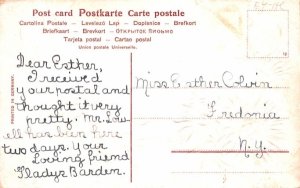 Post card Postkarte Carte postale
Cartolina Postale - Levelező Lap - Dopisnice - Brefkort
Briefkaart - Brevkort - ОТКРЫТОЕ ПИСЬМО
Tarjeta postal - Cartao postal
Union postale Universelle.
PRINTED IN GERMANY.
Dear Esther,
I received
your postal and
thought it very
pretty. Mr. Low-
ell has been here
two days. Your
Loving friend
Gladys Barden.
Miss Esther Colvin
Fredonia
N.Y.